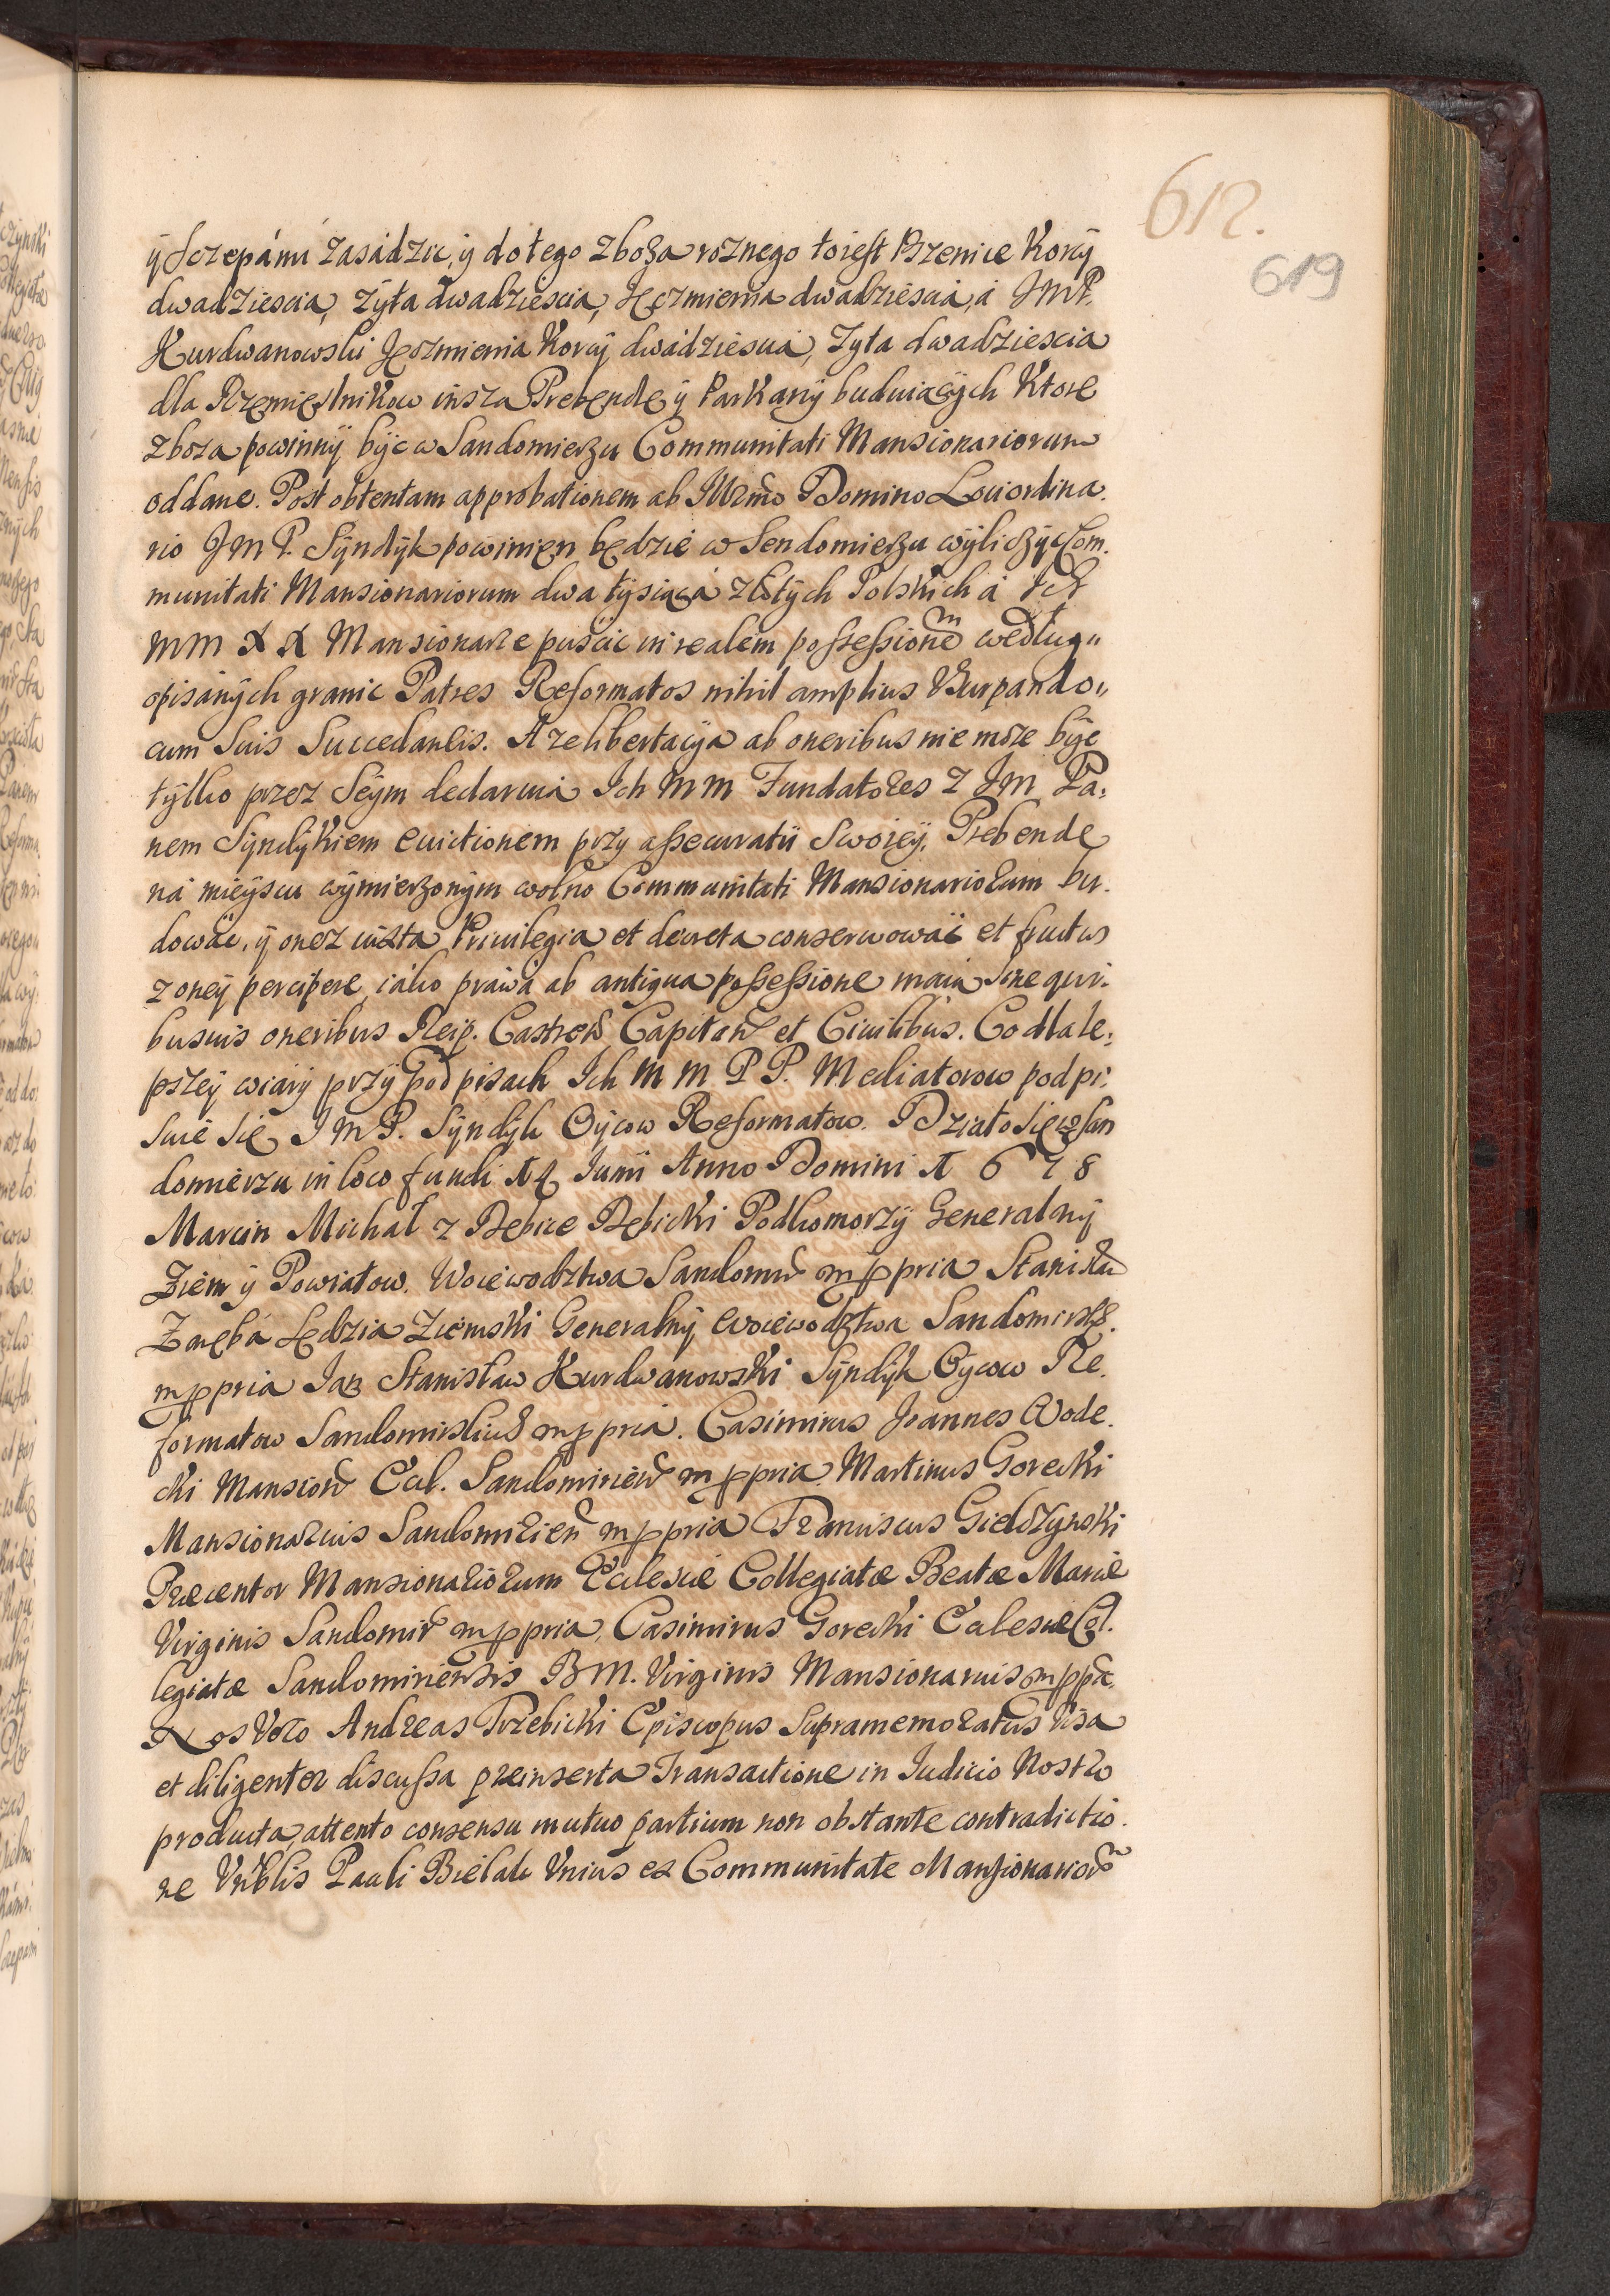 612.
619
ÿ sczepámi zasádzić, ÿ do tego zboża roznego to iest Przenice Korcÿ
dwadziescia, zÿta dwadziescia, Jęczmienia dwadziescia, á JmP.
Kurdwanowski Jęczmienia Korcÿ dwádziescia, Zyta dwadziescia
dla Rzemięslnikow inszą Prebendę ÿ Parkanÿ buduiącÿch Ktore
zboza powinnÿ bÿc w Sandomierzu Communitati Mansionariorum
oddane. Post obtentam approbationem ab Illr̃mo Domino Loci ordina.
rio JmP. Sÿndÿk powinien będzie w Sendomierzu wÿliczÿc Com.
munitati Mansionariorum dwa tÿsiącá złotÿch Polskich á Ich
mm X X Mansionarze puscic in realem possessionem według„
opisánÿch granic Patres Reformatos nihil amplius Vsurpando„
cum Suis Succedaneis. A ze libertacÿa ab oneribus nie moze bÿc
tÿlko przez Seÿm declaruią Ich mm Fundatores z Jm Pa,
nem Sÿndÿkiem euictionem przÿ assecuratii Swoieÿ. Prebendę
ná mieÿscu wÿmierzonÿm wolno Communitati Mansionariorum bu.
dowác, ÿ onez iuxta Priuilegia et decreta conserwowáć et fructus
z oneÿ percipere, iáko práwá ab antiqua possessione máią sine qui.
busuis oneribus Reip. Castreñ Capitañ et Ciuilibus. Co dla le,
pszeÿ wiárÿ przÿ podpisach Ich mm. P P. Mediatorow podpi,
suie się JmP. Sÿndÿk Oÿcow Reformatow. Działo się w San
domierzu in loco fundi 14 Iunii Anno Domini 1678
Marcin Michał z Dębice Dębicki Podkomorzÿ Generalnÿ
Ziem ÿ Powiatow. Woiewodztwa Sandom̃ mppria Stanisław
Zaręba Sędzia Ziemski Generalnÿ Woiewodztwa Sandomirsk̃.
mppria Jan Stanisław Kurdwanowski Sÿndÿk Oÿcow Re.
formatow Sandomirskich mppriá. Casimirus Joannes Wode.
cki Mansioñ Eccl. Sandomirieñ mppria Martinus Gorecki
Mansionarius Sandomirieñ mppria Franciscus Giełczÿnski
Præcentor Mansionariorum Ecclesiæ Collegiatæ Beatæ Mariæ
Virginis Sandomir̃ mppria, Casimirus Gorecki Ecclesiæ Col.
legiatæ Sandomiriensis BM. Virginis Mansionarius mppã.
Nos Vero Andreas Trzebicki Episcopus Supramemoratus Visa
et diligenter discussa præinserta Transactione in Iudicio Nostro
producta, attento consensu mutuo partium non obstante contradictio.
ne Vñblis Pauli Bielak Vnius ex Communitate Mansionarior̃